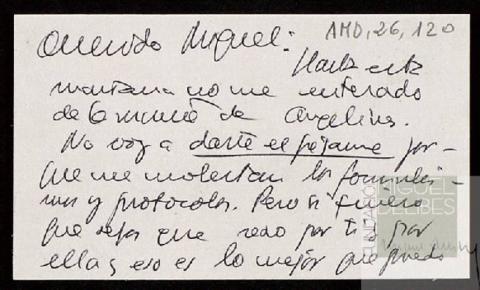 AMD, 26, 120
Querido Miguel:
Hasta esta
mañana no me enterado
de la muerte de Angelines.
No voy a darte el pésame por-
que me molestan los formulis-
mos y protocolos. Pero si quiero
que sepas que rezo por ti y por
ella y eso es lo mejor que puedo
FUNDACIÓN
MIGUEL
DELIBES